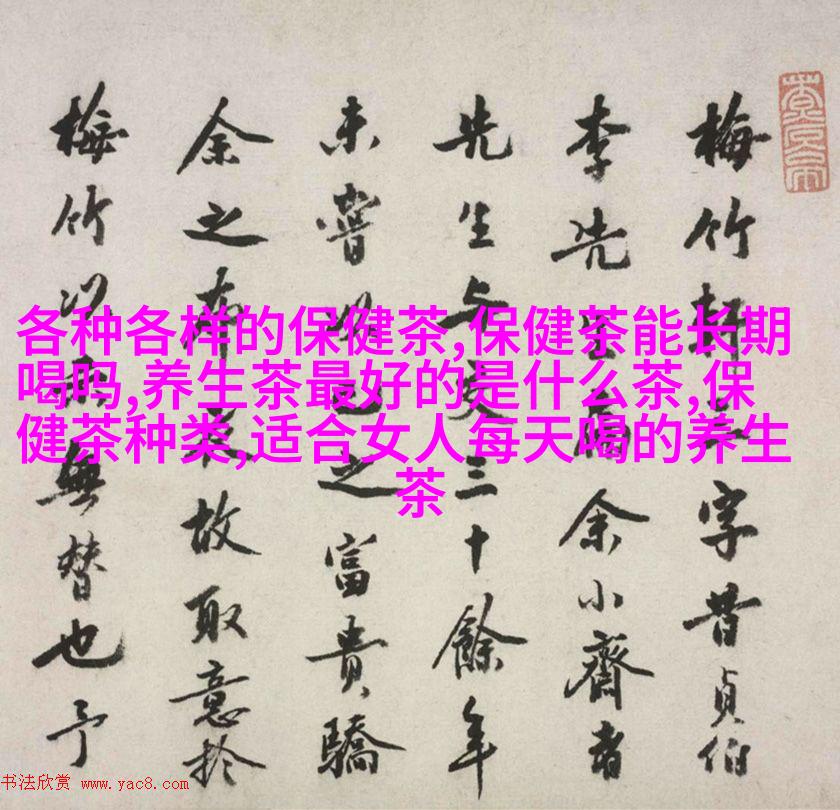 梅竹軒字昔貞伯
李先生為余小齋書
先生与交三十餘年
未嘗以己之富貴驕
余之布衣故取意於
梅竹以無替也予
各种各样的保健茶,保健茶能长期
喝吗,养生茶最好的是什么茶,保
健茶种类,适合女人每天喝的养生
茶
书法欣赏 www.yac8.com